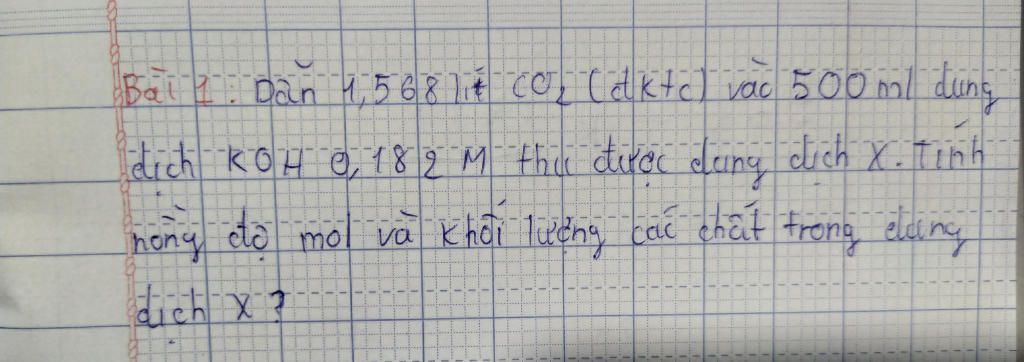 Bài 1: Dẫn 1,568 lít CO₂ (đktc) vào 500ml dung
dịch KOH 0,182 M thu được dung dịch X. Tính
nồng độ mol và khối lượng các chất trong dung
dịch X?